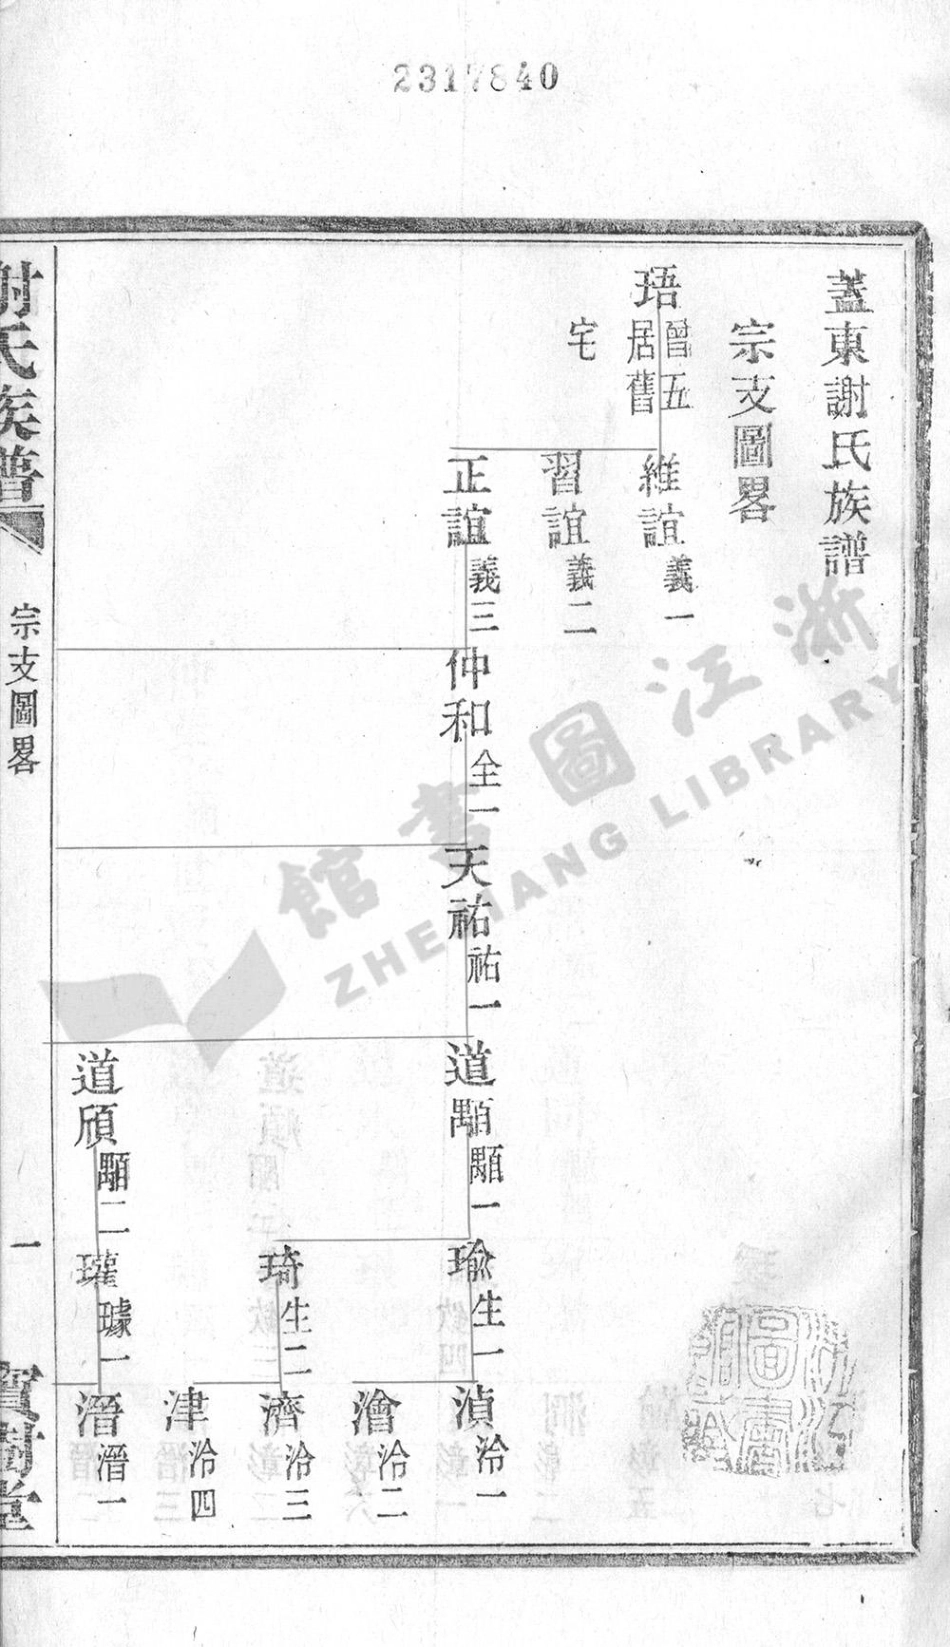 2317840
蓋東謝氏族譜
宗支圖畧
珸 曾五居舊宅
維誼 義一
習誼 義二
正誼 義三
仲和 全一
天祐 祐一
道顒 顒一
瑜 生一
湞 泠一
澮 泠二
琦 生二
濟 泠三
津 泠四
道頎 顒二
瓘 璩一
潛 潛一
謝氏族譜
宗支圖畧
一
寶樹堂
浙江圖書館
ZHEJIANG LIBRARY